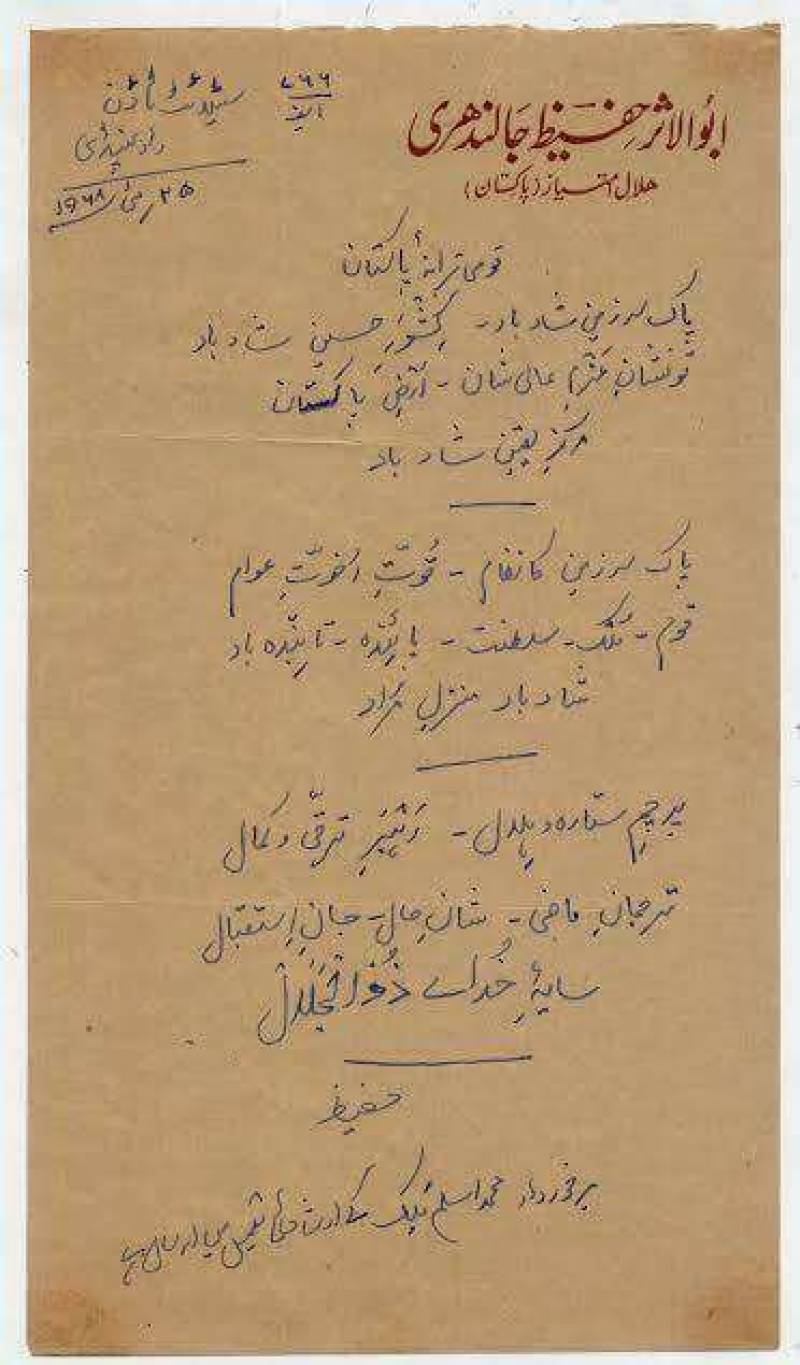 ابُو الاثر حفیظ جالندھری
ھلال امتیاز (پاکستان)
۷۸۶
سیٹلائٹ ٹاؤن
راولپنڈی
۲۵ مئی ۱۹۶۸
قومی ترانۂ پاکستان
پاک سرزمین شاد باد - کِشْوَرِ حسین شاد باد
تو نشانِ عَزْمِ عالی شان - اَرْضِ پاکستان
مرکزِ یقین شاد باد
پاک سرزمین کا نظام - قُوّتِ اخوّتِ عوام
قوم - مُلک - سلطنت - پائِنْدہ - تابِنْدہ باد
شاد باد منزلِ مُراد
پرچمِ ستارہ و ہِلال - رَہْبَرِ ترقّی و کمال
ترجمانِ ماضی - شانِ حال - جانِ اِستقبال
سایۂِ خُدائے ذُوالْجَلَالْ
حفیظ
برخوردار محمد اسلم کی تعمیل میں ارسال ہے